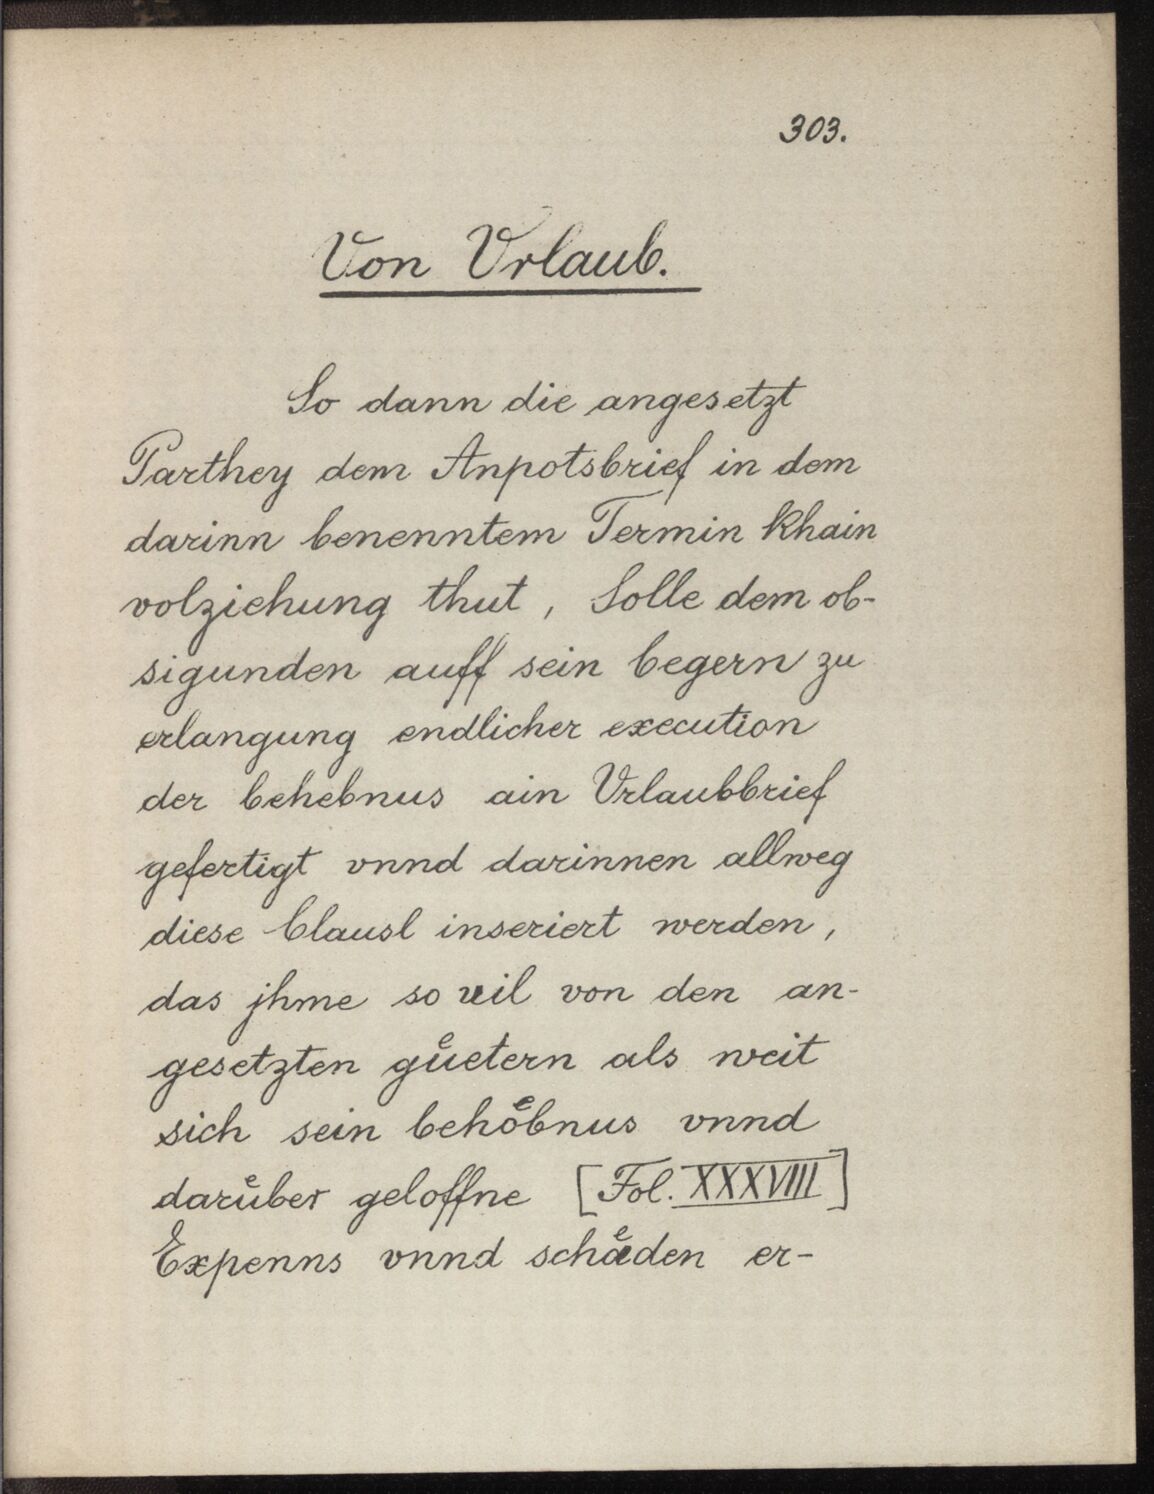 303.
Von Vrlaub.
So dann die angesetzt
Parthey dem Anpotsbrief in dem
darinn benenntem Termin khain
volziehung thut, Solle dem ob-
sigunden auff sein begern zu
erlangung endlicher execution
der behebnus ain Vrlaubbrief
gefertigt vnnd darinnen allweg
diese Clausl inseriert werden,
das jhme so uil von den an-
gesetzten guͤetern als weit
sich sein behoͤbnus vnnd
daruͤber geloffne [Fol. XXXVIII]
Expenns vnnd schaͤden er-